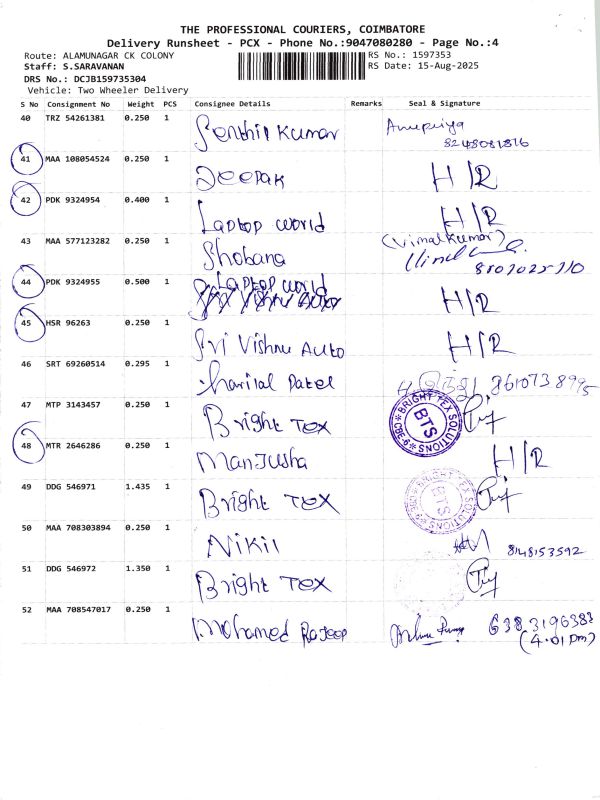 THE PROFESSIONAL COURIERS, COIMBATORE
Delivery Runsheet - PCX - Phone No.:9047080280 - Page No.:4
Route: ALAMUNAGAR CK COLONY
RS No.: 1597353
Staff: S.SARAVANAN
RS Date: 15-Aug-2025
DRS No.: DCJB159735304
Vehicle: Two Wheeler Delivery
S No Consignment No Weight PCS Consignee Details Remarks Seal & Signature
40 TRZ 54261381 0.250 1 Senthil Kumar Anupriya
8248081816
41 MAA 108054524 0.250 1 Deepak H/R
42 PDK 9324954 0.400 1 Laptop world H/R
43 MAA 577123282 0.250 1 Shobana (Vimalkumar)
44 PDK 9324955 0.500 1 Laptop world H/R
45 HSR 96263 0.250 1 Sri Vishnu Auto H/R
46 SRT 69260514 0.295 1 Patel 8610738995
47 MTP 3143457 0.250 1 Bright Tex BRIGHT TEX SOLUTIONS BTS CBE-6
48 MTR 2646286 0.250 1 Manjusha H/R
49 DDG 546971 1.435 1 Bright Tex BRIGHT TEX SOLUTIONS BTS
50 MAA 708303894 0.250 1 Nikil 8148153592
51 DDG 546972 1.350 1 Bright Tex
52 MAA 708547017 0.250 1 Mohamed 6383196383
(4.01 pm)